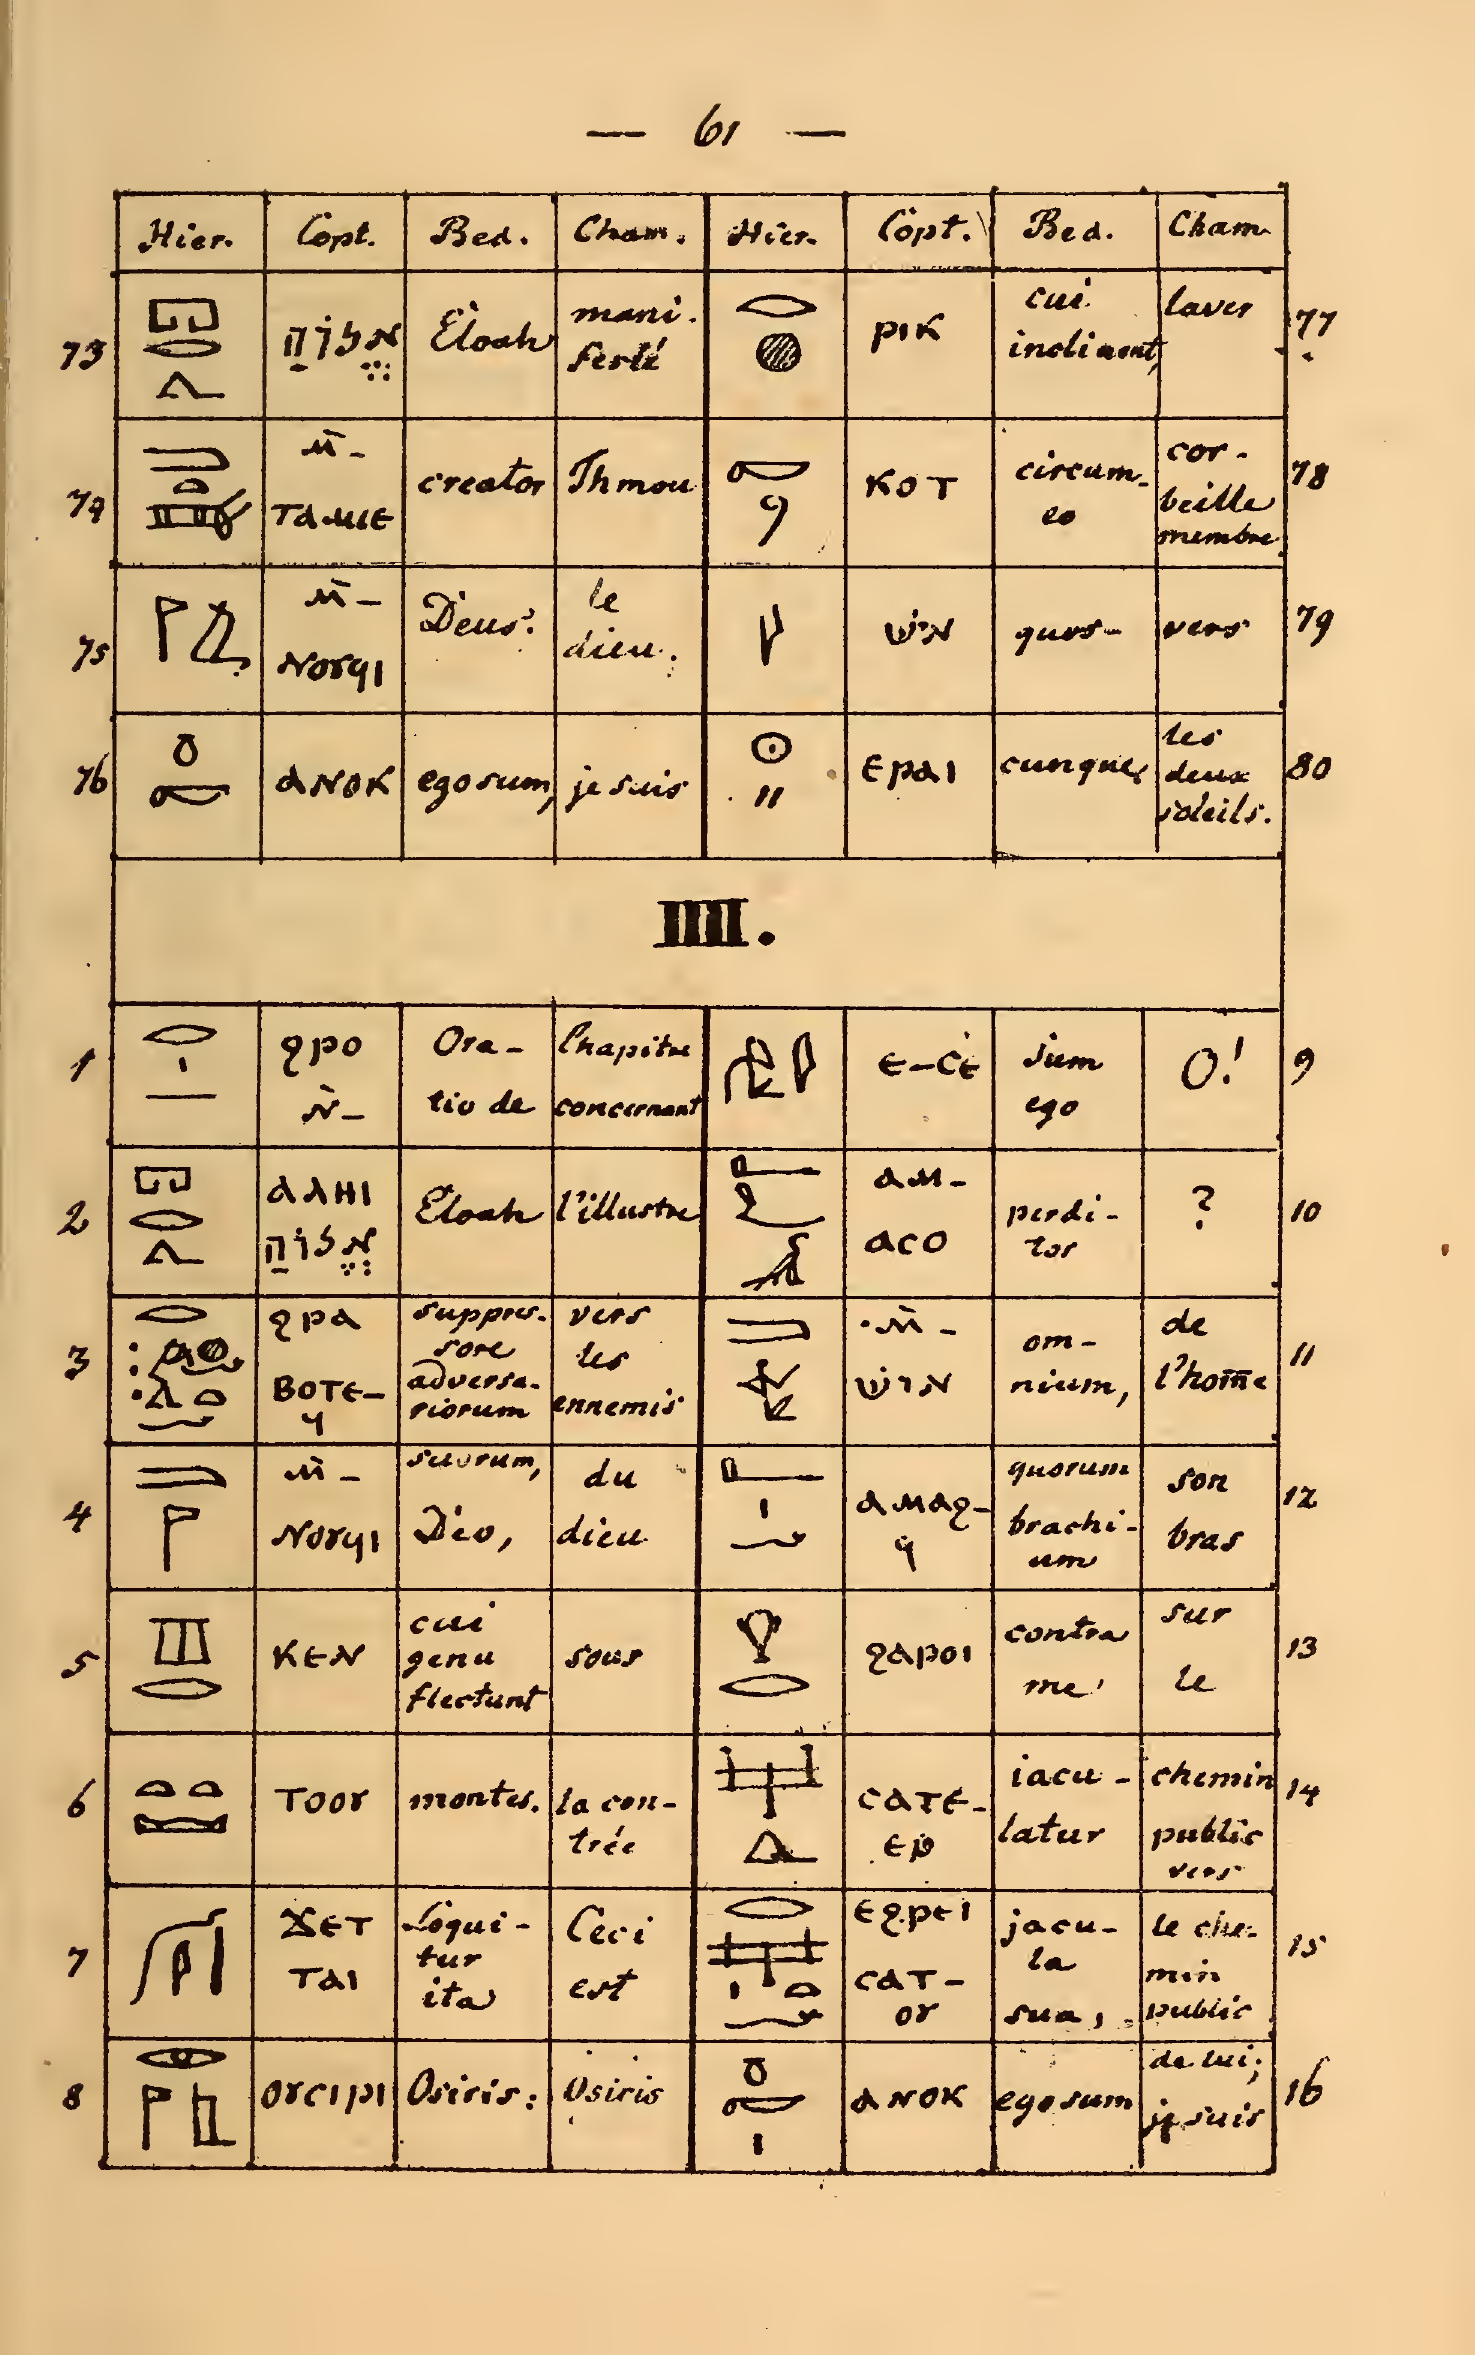 — 61 —
Hier. Copt. Bed. Cham. Hier. Copt. Bed. Cham.
73 אֱלוֹהַּ Eloah mani-
festé
ⲣⲓⲕ cui
inclinent, laver 77
74 ⲙ̄-
ⲧⲁⲙⲓⲉ creator Thmou
ⲕⲟⲧ circum-
eo cor-
beille
membre 78
75 ⲙ̄-
ⲛⲟⲩϥⲓ Deus: le
dieu.
איש quos- vers 79
76 ⲁⲛⲟⲕ ego sum, je suis
ⲉⲣⲁⲓ cunque, les
deux
soleils. 80
IIII.
1 ϩⲣⲟ
ⲛ̄- Ora-
tio de Chapitre
concernant
ⲉ-ⲥⲉ sum
ego O! 9
2 ⲁⲗⲏⲓ
אֱלוֹהַּ Eloah l'illustre
ⲁⲙ-
ⲁⲥⲟ perdi-
tor ? 10
3 ϩⲣⲁ
ⲃⲟⲧⲉ-
ϥ suppres-
sore
adversa-
riorum vers
les
ennemis
ⲙ̄-
איש om-
nium, de
l'hom̄e 11
4 ⲙ̄-
ⲛⲟⲩϥⲓ suorum,
Deo, du
dieu
ⲁⲙⲁϩ-
ϥ quorum
brachi-
um son
bras 12
5 ⲕⲉⲛ cui
genu
flectunt sous
ϩⲁⲣⲟⲓ contra
me sur
le 13
6 ⲧⲟⲟⲩ montes. la con-
trée
ⲥⲁⲧⲉ-
ⲉⲣ iacu-
latur chemin
public
vers 14
7 ϫⲉⲧ
ⲧⲁⲓ Loqui-
tur
ita Ceci
est
ⲉϩⲣⲉⲓ
ⲥⲁⲧ-
ⲟⲩ jacu-
la
sua, le che-
min
public 15
8 ⲟⲩⲥⲓⲣⲓ Osiris: Osiris
ⲁⲛⲟⲕ ego sum de lui;
je suis 16